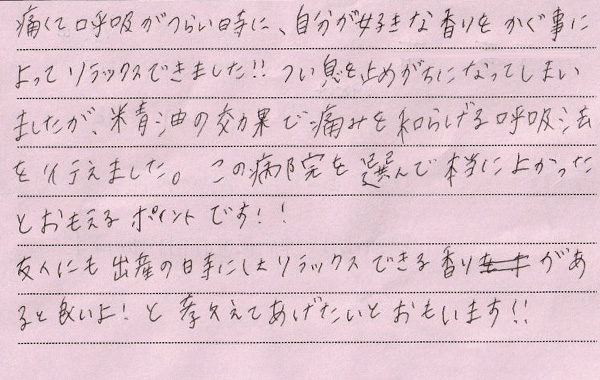 痛くて呼吸がつらい時に、自分が好きな香りをかぐ事に
よってリラックスできました!! つい息を止めがちになってしまい
ましたが、精油の効果で痛みを和らげる呼吸法
を行えました。この病院を選んで本当によかった
とおもえるポイントです!!
友人にも出産の時にはリラックスできる香りがあ
ると良いよ!と教えてあげたいとおもいます!!